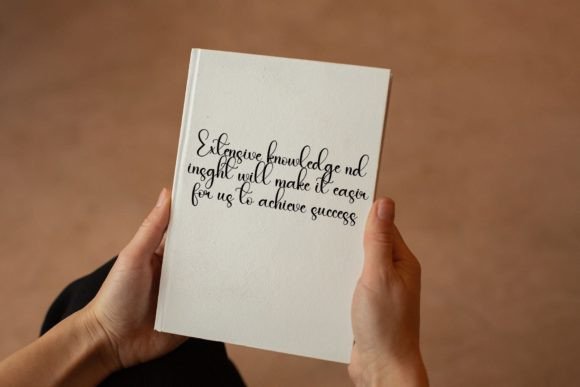 Extensive knowledge nd
insght will make it easir
for us to achieve success